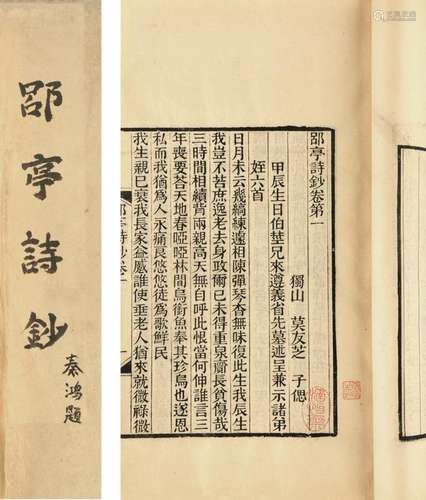 邵亭詩鈔
秦鴻題
邵亭詩鈔卷第一
獨山 莫友芝 子偲
甲辰生日伯莖兄來遵義省先墓述呈兼示諸弟
姪六首
日月未云幾縞練遠相陳彈琴杳無味復此生我辰生
我豈不苦庶逸老去身政爾已未得重泉齎長貧傷哉
三時間相續背兩親高天無自呼此恨當何伸誰言三
年喪要荅天地春啞啞林間烏銜魚奉其珍鳥也遂恩
私而我猶爲人永痛良悠悠徒爲歌鮮民
我生親已衰我長家益感誰使垂老人猶來就微祿微
邵亭詩鈔卷一